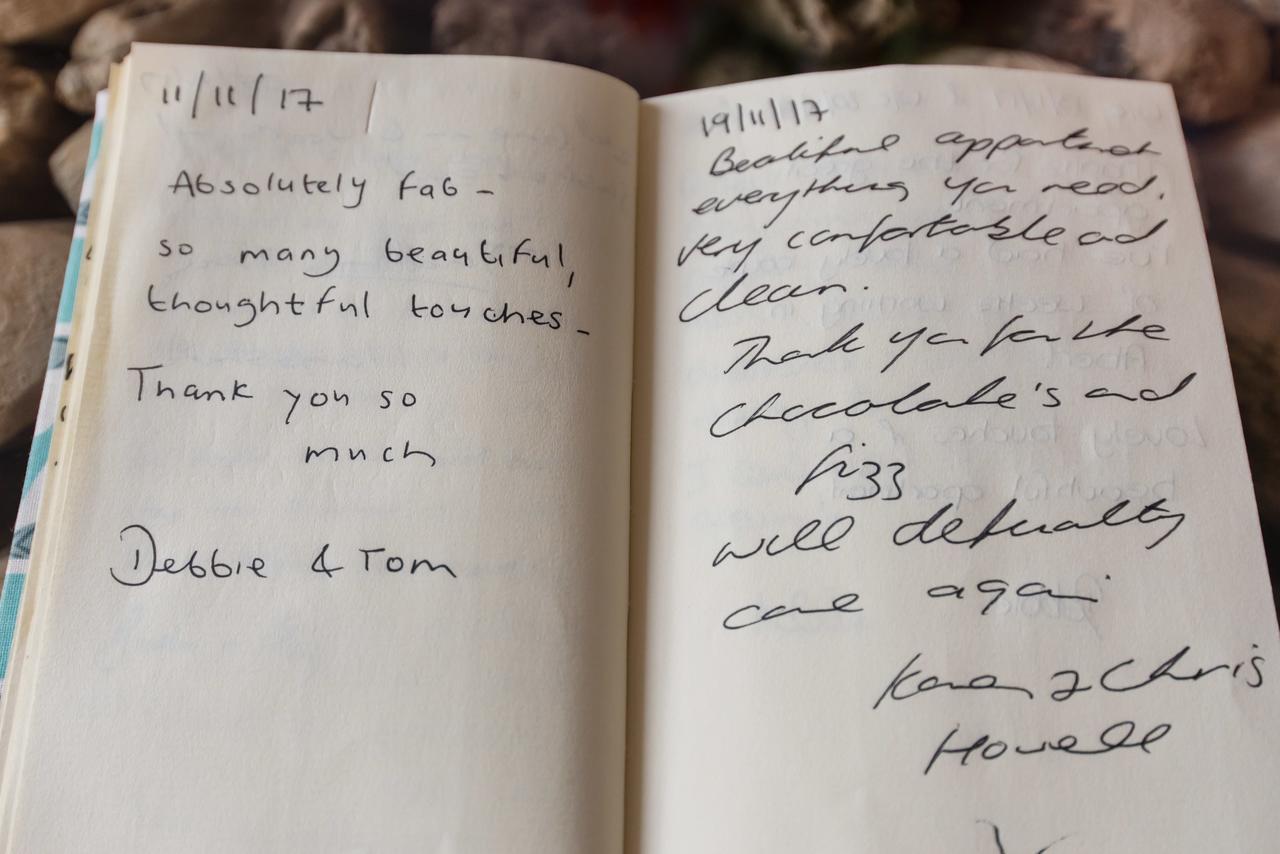 11/11/17
Absolutely fab -
so many beautiful,
thoughtful touches -
Thank you so
much
Debbie & Tom
19/11/17
Beatiful appartment
everything you need.
very comfortable and
clean.
Thank you for the
chocolate's and
fizz
will defualty
come again
Karen & Chris
Howell